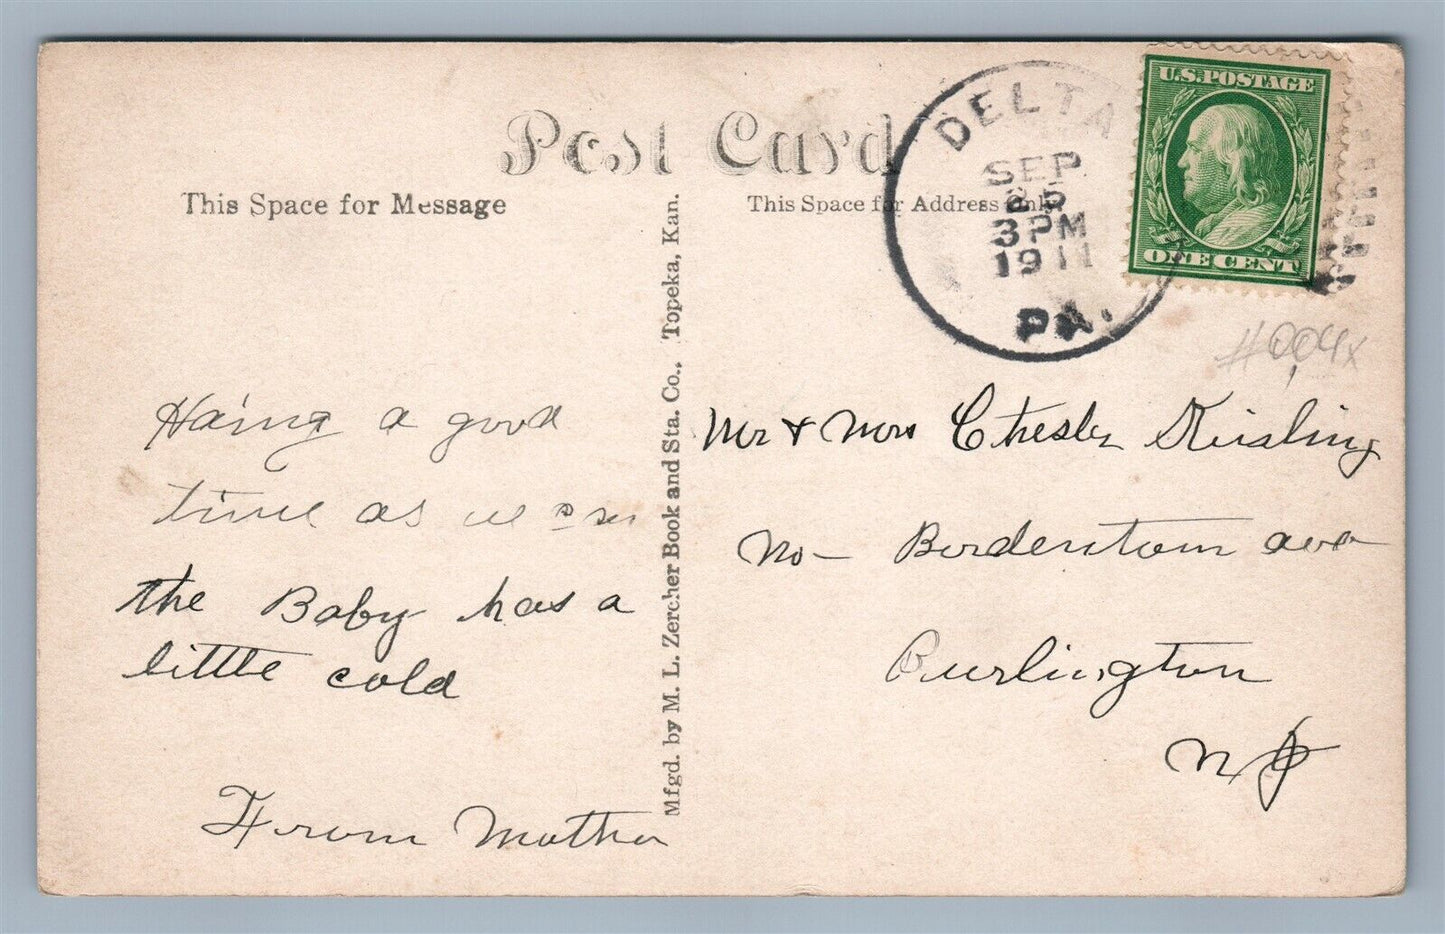 Post Card
This Space for Message
This Space for Address Only.
DELTA
SEP
25
3 PM
1911
PA.
U.S. POSTAGE
ONE CENT
Mfgd. by M. L. Zercher Book and Sta. Co., Topeka, Kan.
Haing a good
time as we
the Baby has a
little cold
From Mother
Mr & Mrs Chester Kisling
No— Bordentown ave
Burlington
N J